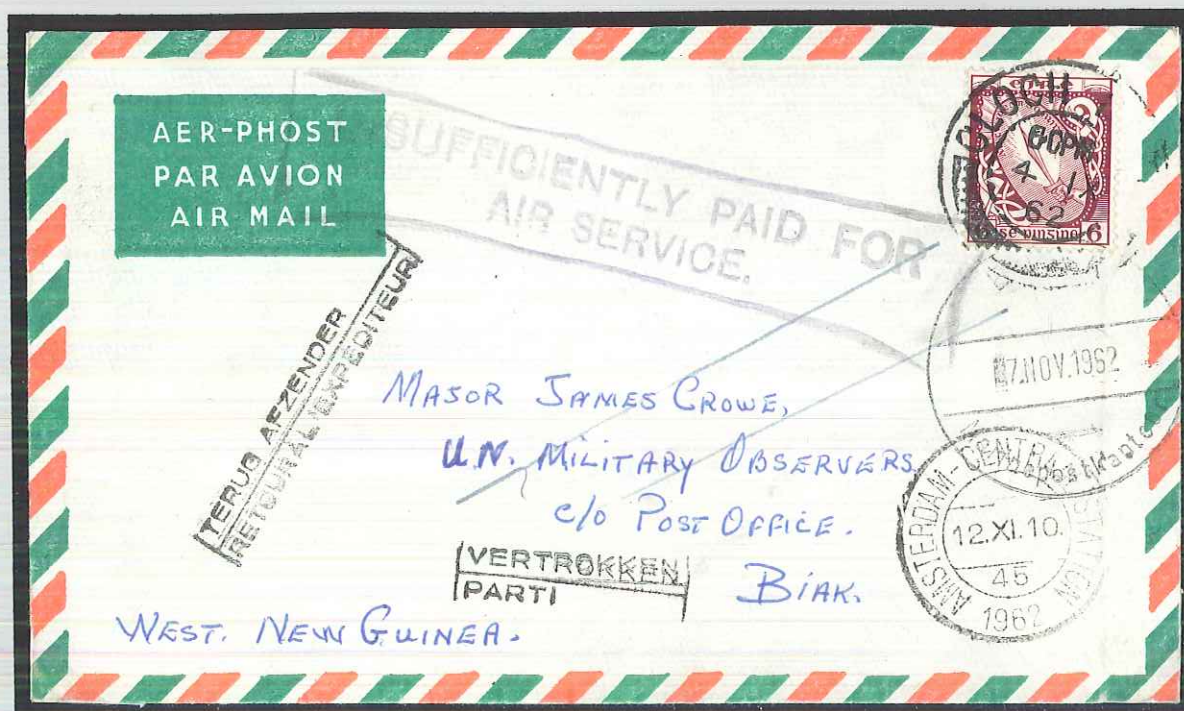 AER-PHOST
PAR AVION
AIR MAIL
SUFFICIENTLY PAID FOR
AIR SERVICE.
6.0PM
4 IX
62
6
TERUG AFZENDER
RETOUR A L'EXPEDITEUR
17.NOV.1962
MAJOR JAMES CROWE,
U.N. MILITARY OBSERVERS
C/O POST OFFICE.
BIAK.
WEST. NEW GUINEA.
VERTROKKEN
PARTI
AMSTERDAM-CENTR. STATION
12.XI.10.
45
1962